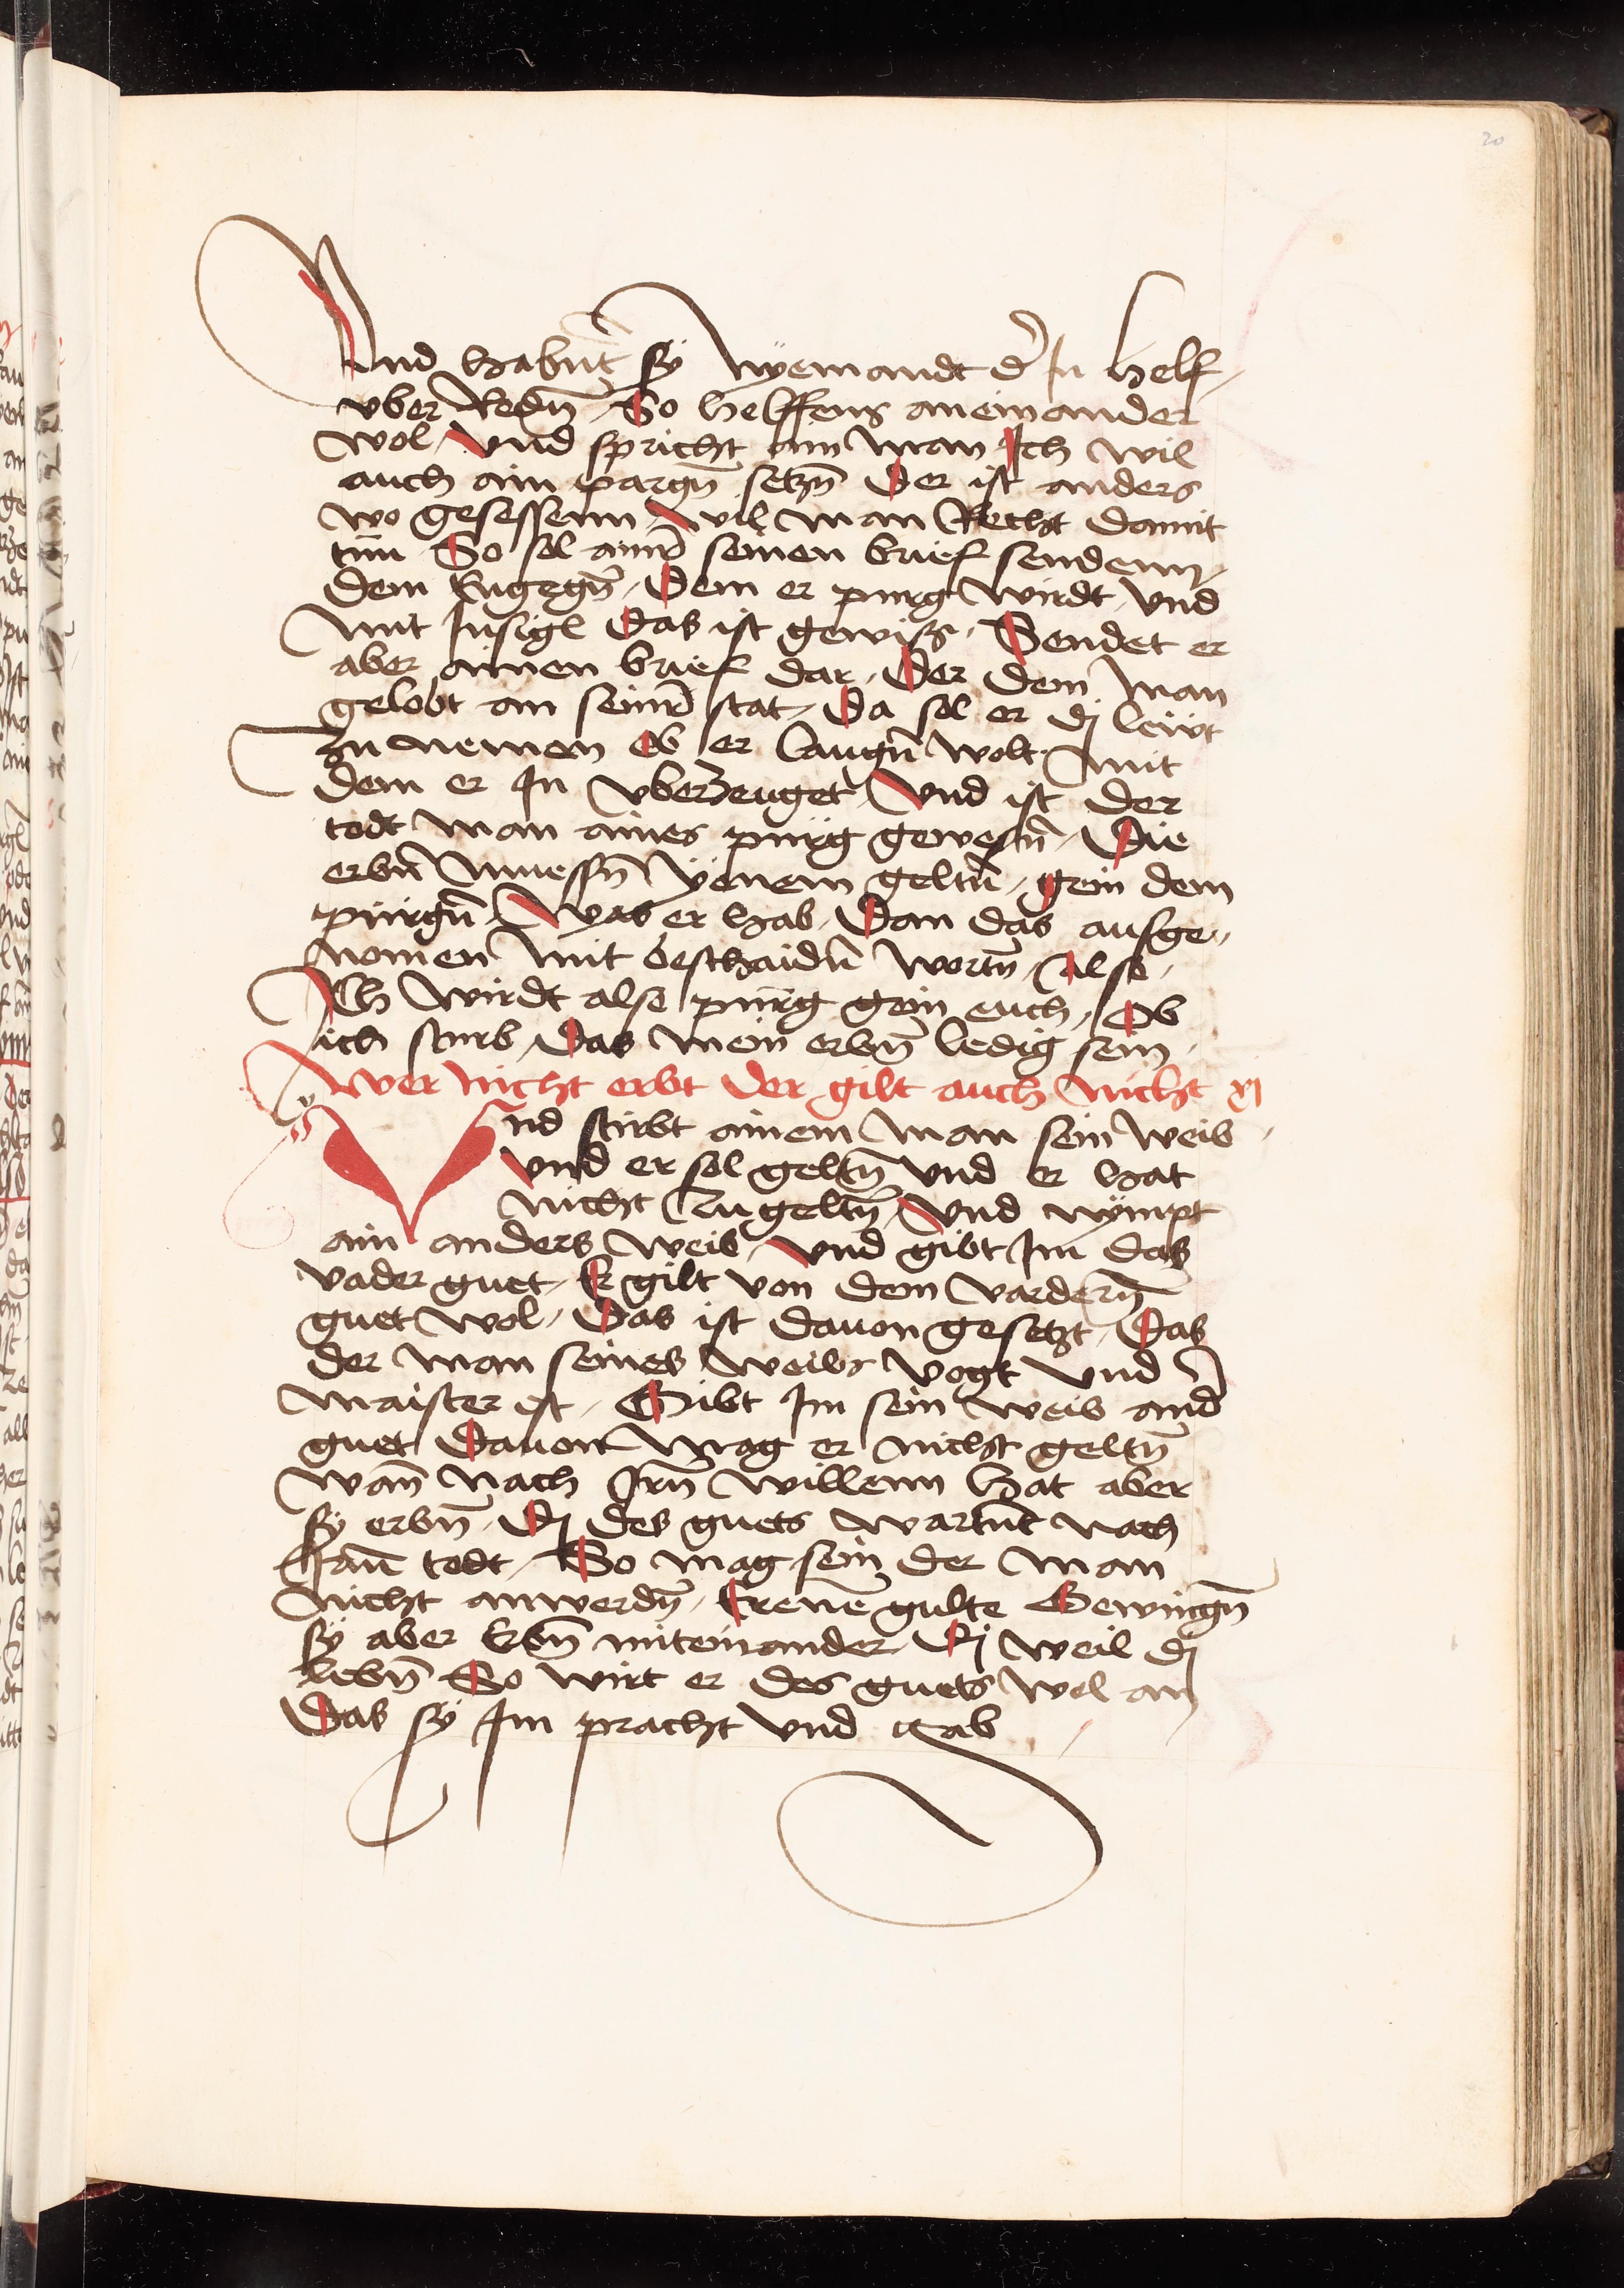 20
Vnd habnt sÿ nÿemandt d' In helf
vber Redn̄ So helffens aneinander
wol Vnd spricht ain man Ich wil
auch ain pargn̄ setzn̄ Der ist anders
wo gesessenn wil man Recht damit
tun So sol ainr̄ seinen brief sendenn
dem kugegn̄ Dem er purg wirdt vnd
mit Insigl Das ist gewiss Sendet er
aber ainen brief dar Der dem man
gelobt an seinr̄ stat Da sol er dj leẅt
zu nemen Ob er laugn̄ wolt mit
dem er In vberzeuget Vnd ist der
todt man aines pürg gewesn̄ Die
erbn̄ muessn̄ ÿenem geltn̄ gein dem
pürgn̄ Was er hab Dan das ausge„
nomen mit beschaidn̄ wortn̄ Also
Ich wirdt also pürg gein euch Ob
ich sturb Das mein erbn̄ ledig sein
Wer nicht erbt der gilt auch nicht xj
Vnd stirbt ainem man sein weib
vnd er sol geltn̄ vnd er hat
nicht zu geltn̄ Vnd nÿmpt
ain anders weib Vnd gibt Im das
vader guet Er gilt von dem vardern̄
guet wol Das ist dauon gesetzt Das
der man seines weibs vogt vnd
maister ist Gibt Im sein weib and'
guet Dauon mag er nicht geltn̄
wan̄ nach Irn̄ willenn hat aber
sÿ erbn̄ Dj des guets wartnt nach
Iram̄ todt So mag sein der man
nicht anwerdn̄ krenne gulte Gewingn̄
sÿ aber Erbn̄ miteinander Dj weil dj
lebn̄ So wirt er des guets wol an
Das sÿ Im pracht vnd gab